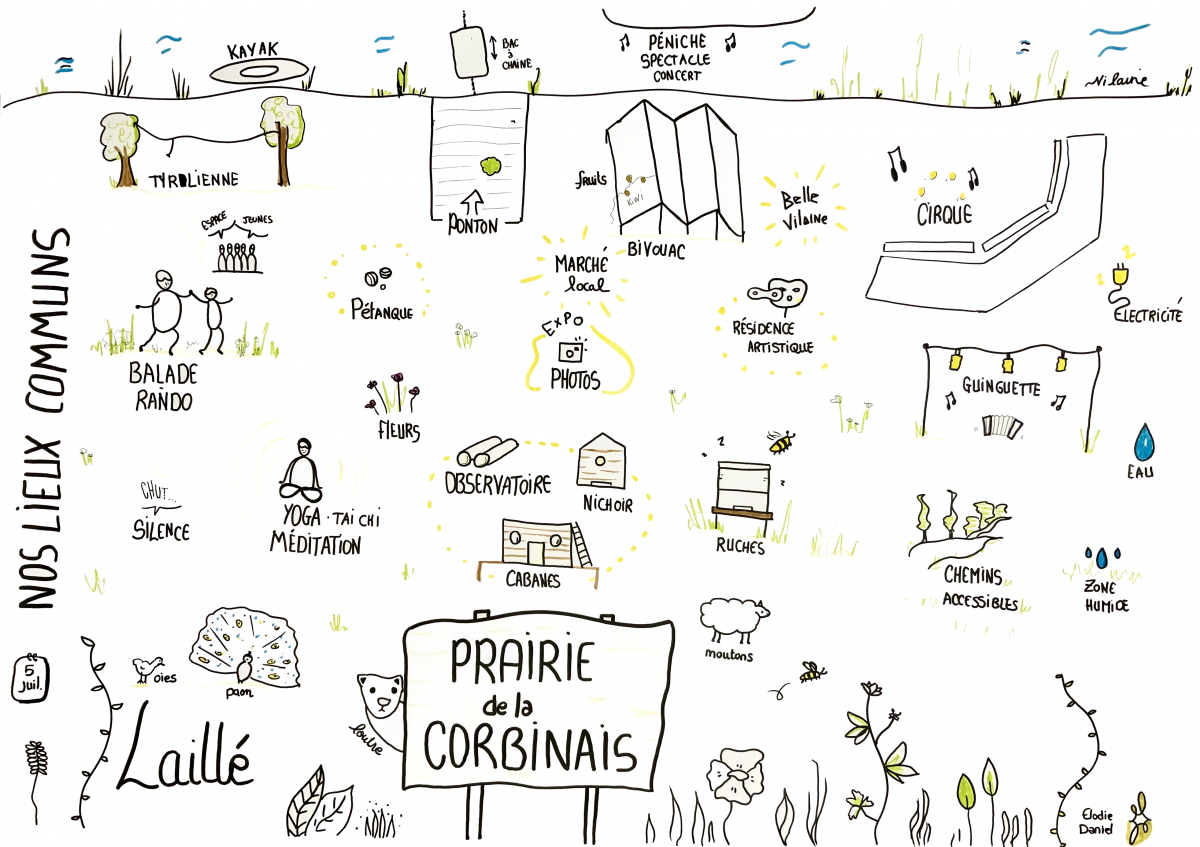 KAYAK
BAC
à
CHAÎNE
PÉNICHE
SPECTACLE
CONCERT
Vilaine
TYROLIENNE
PONTON
fruits
Kiwi
BIVOUAC
Belle
Vilaine
CIRQUE
ESPACE JEUNES
NOS LIEUX COMMUNS
BALADE
RANDO
Pétanque
MARCHÉ
local
EXPO
PHOTOS
RÉSIDENCE
ARTISTIQUE
ÉLECTRICITÉ
GUINGUETTE
EAU
flEURS
CHUT...
SILENCE
YOGA · TAI CHI
MÉDITATION
OBSERVATOIRE
NICHOIR
CABANES
RUCHES
CHEMINS
ACCESSIBLES
ZONE
HUMIDE
5
juil.
oies
paon
Laillé
loutre
PRAIRIE
de la
CORBINAIS
moutons
Elodie
Daniel